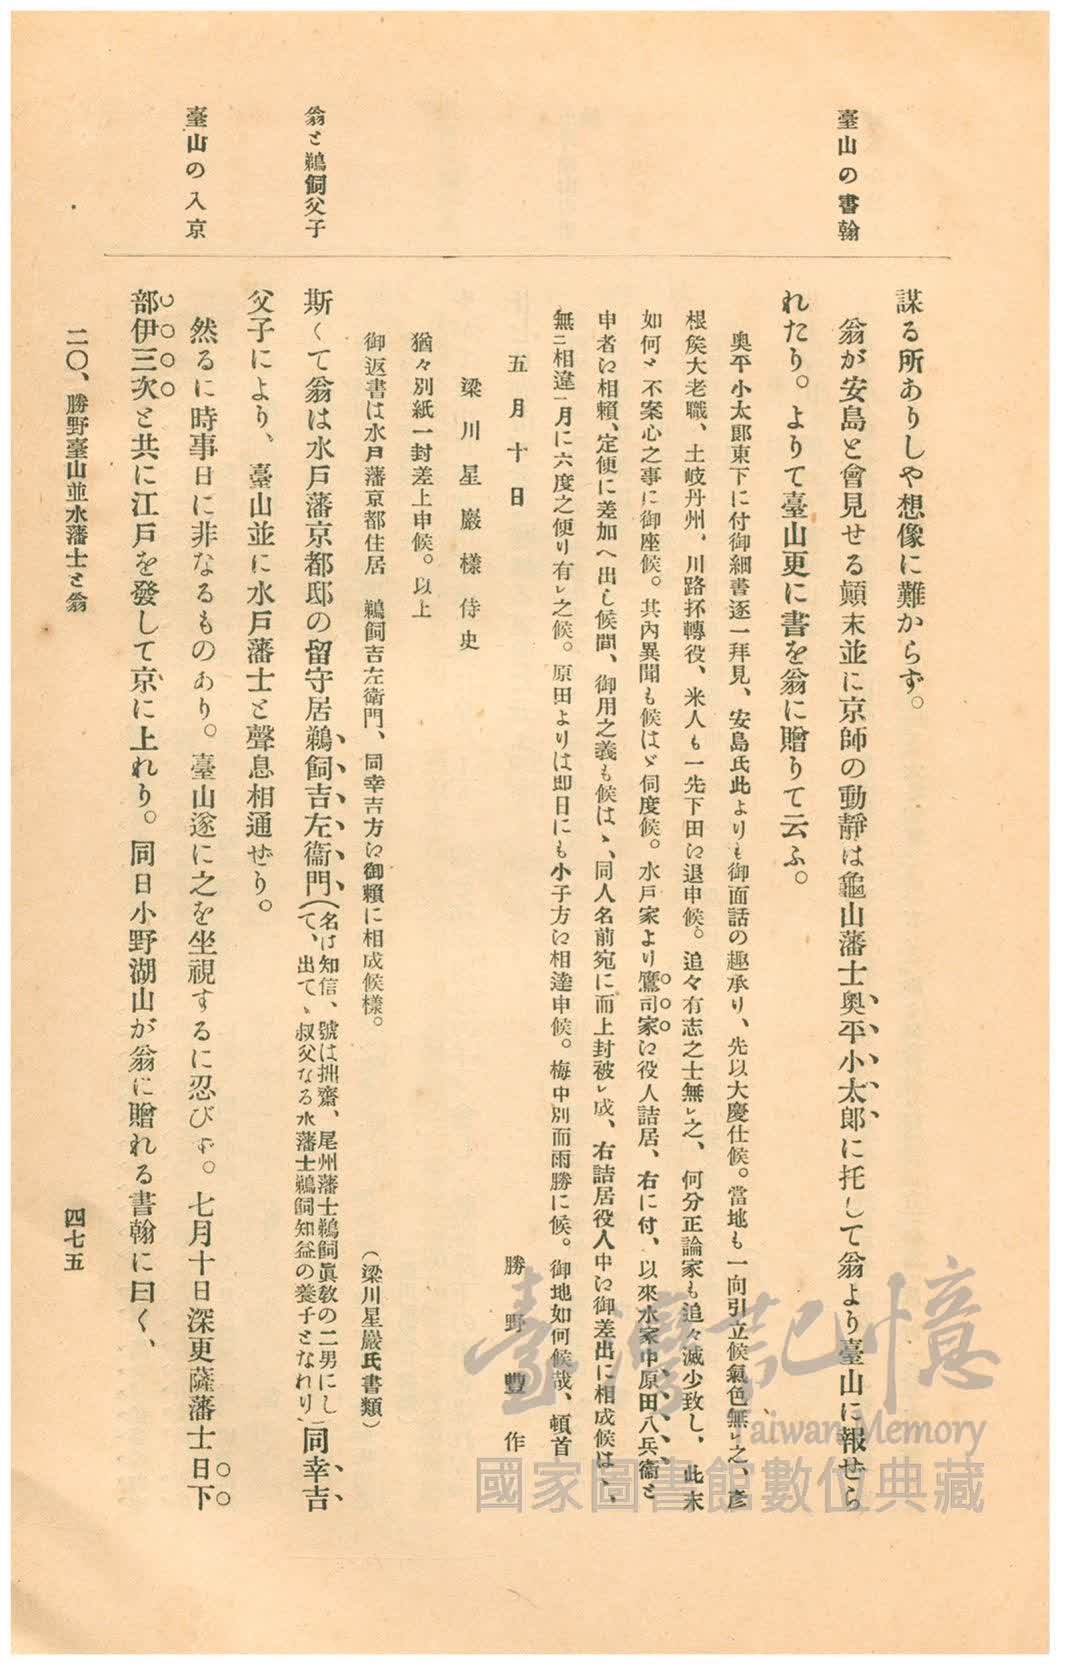 臺山の書翰
翁と鵜飼父子
臺山の入京
謀る所ありしや想像に難からず。
翁が安島と會見せる顚末並に京師の動靜は龜山藩士奧平小太郎に托して翁より臺山に報せら
れたり。よりて臺山更に書を翁に贈りて云ふ。
奧平小太郎東下に付御細書逐一拜見、安島氏此よりも御面話の趣承り、先以大慶仕候。當地も一向引立候氣色無レ之、彥
根矦大老職、土岐丹州、川路抔轉役、米人も一先下田に退申候。追々有志之士無レ之、何分正論家も追々滅少致し、此末
如何と不案心之事に御座候。共內異聞も候はゞ伺度候。水戶家より鷹司家に役人詰居、右に付、以來水家中原田八兵衞と
申者に相賴、定便に差加へ出し候間、御用之義も候はゝ、同人名前宛に而上封被レ成、右詰居役人中に御差出に相成候はゝ、
無ニ相違一月に六度之便り有レ之候。原田よりは即日にも小子方に相達申候。梅中別而雨勝に候。御地如何候哉、頓首
五月十日
勝野豐作
梁川星巖樣侍史
猶々別紙一封差上申候。以上
御返書は水戶藩京都住居　鵜飼吉左衞門、同幸吉方に御賴に相成候樣。
（梁川星巖氏書類）
斯くて翁は水戶藩京都邸の留守居鵜飼吉左衞門（名は知信、號は拙齋、尾州藩士鵜飼眞敎の二男にして、出て、叔父なる水藩士鵜飼知益の養子となれり）同幸吉
父子により、臺山並に水戶藩士と聲息相通ぜり。
然るに時事日に非なるものあり。臺山遂に之を坐視するに忍びず。七月十日深更薩藩士日下
部伊三次と共に江戶を發して京に上れり。同日小野湖山が翁に贈れる書翰に曰く、
二〇、勝野臺山並水藩士と翁
四七五
臺灣記憶
Taiwan Memory
國家圖書館數位典藏